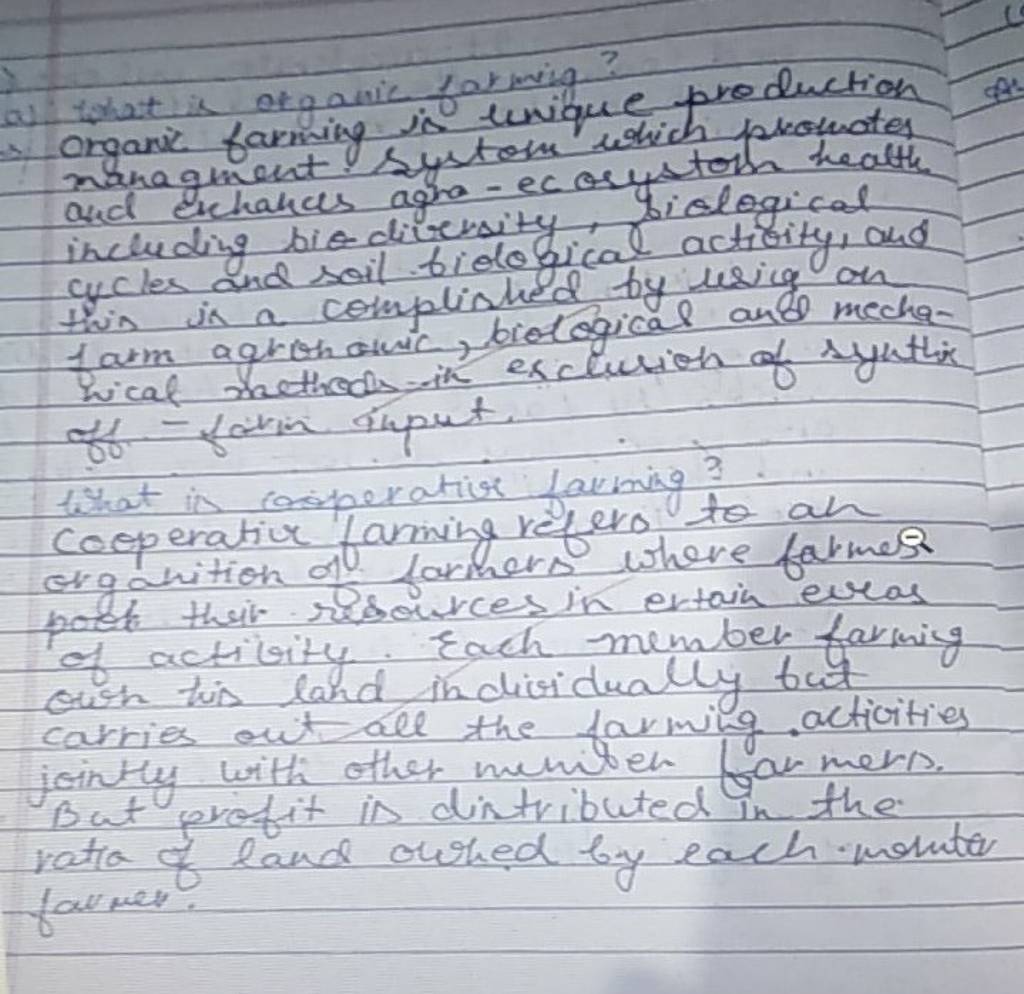 a) What is organic farming?
organic farming is unique production
managment system which promotes
and enhances agro-ecosystom health
including biodiversity, biological
cycles and soil biological activity, and
this is a complished by using on
farm agronomic, biological and mecha-
nical methods in exclusion of synthic
off-farm input.
What is cooperative farming?
Cooperative farming refers to an
organition of farmers where farmers
pool their resources in ertain ereas
of activity. Each member farming
own his land individually but
carries out all the farming activities
jointly with other member farmers.
But profit is distributed in the
ratio of land owned by each member
farmer.